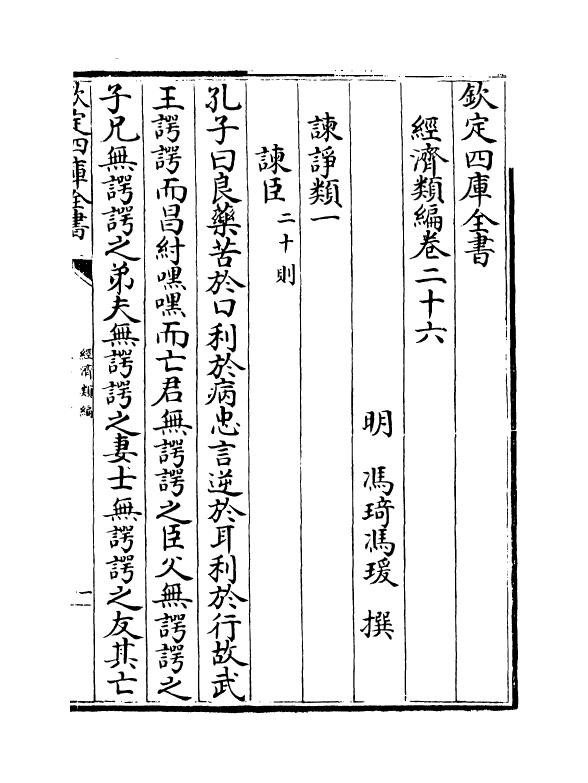 欽定四庫全書
經濟類編卷二十六
明 馮琦馮瑗 撰
諫諍類一
諫臣二十則
孔子曰良藥苦於口利於病忠言逆於耳利於行故武
王諤諤而昌紂嘿嘿而亡君無諤諤之臣父無諤諤之
子兄無諤諤之弟夫無諤諤之妻士無諤諤之友其亡
欽定四庫全書
經濟類編
一